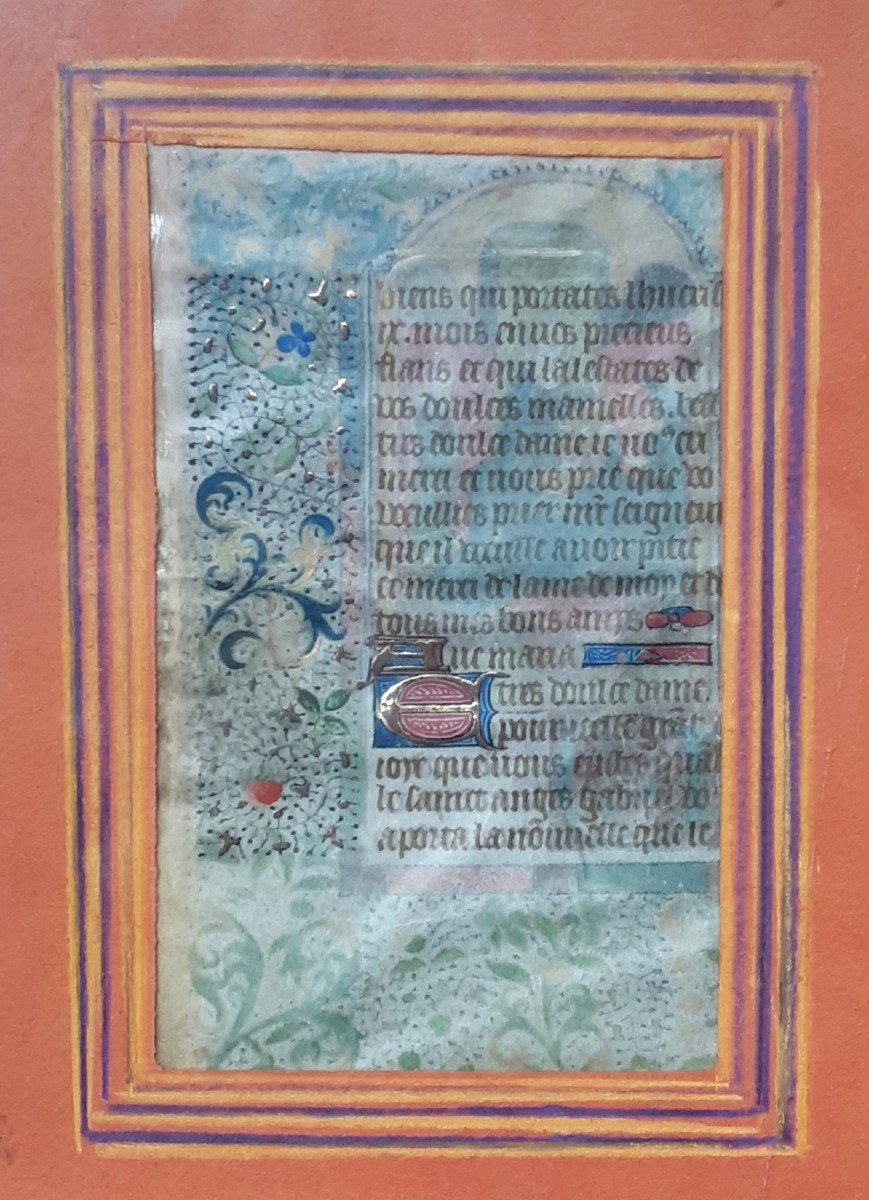 biens qui portates ihucrist
ix. mois en vos precieus
flans et qui lalestates de
vos doulces mamelles. bell
tres doulce dame ie
merci et vous prie que vo
veuillies prier mr̄e seigneur
que il vueille auoir pitie
et merci de lame de moy et de
tous mes bons amys
Aue maria
E tres doulce dame.
pour icelle gr̄at
ioye que vous eustes quāt
le sainct anges gabriel vo9
aporta la nouuelle que le